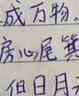 成万物。
房心尾箕
但日月